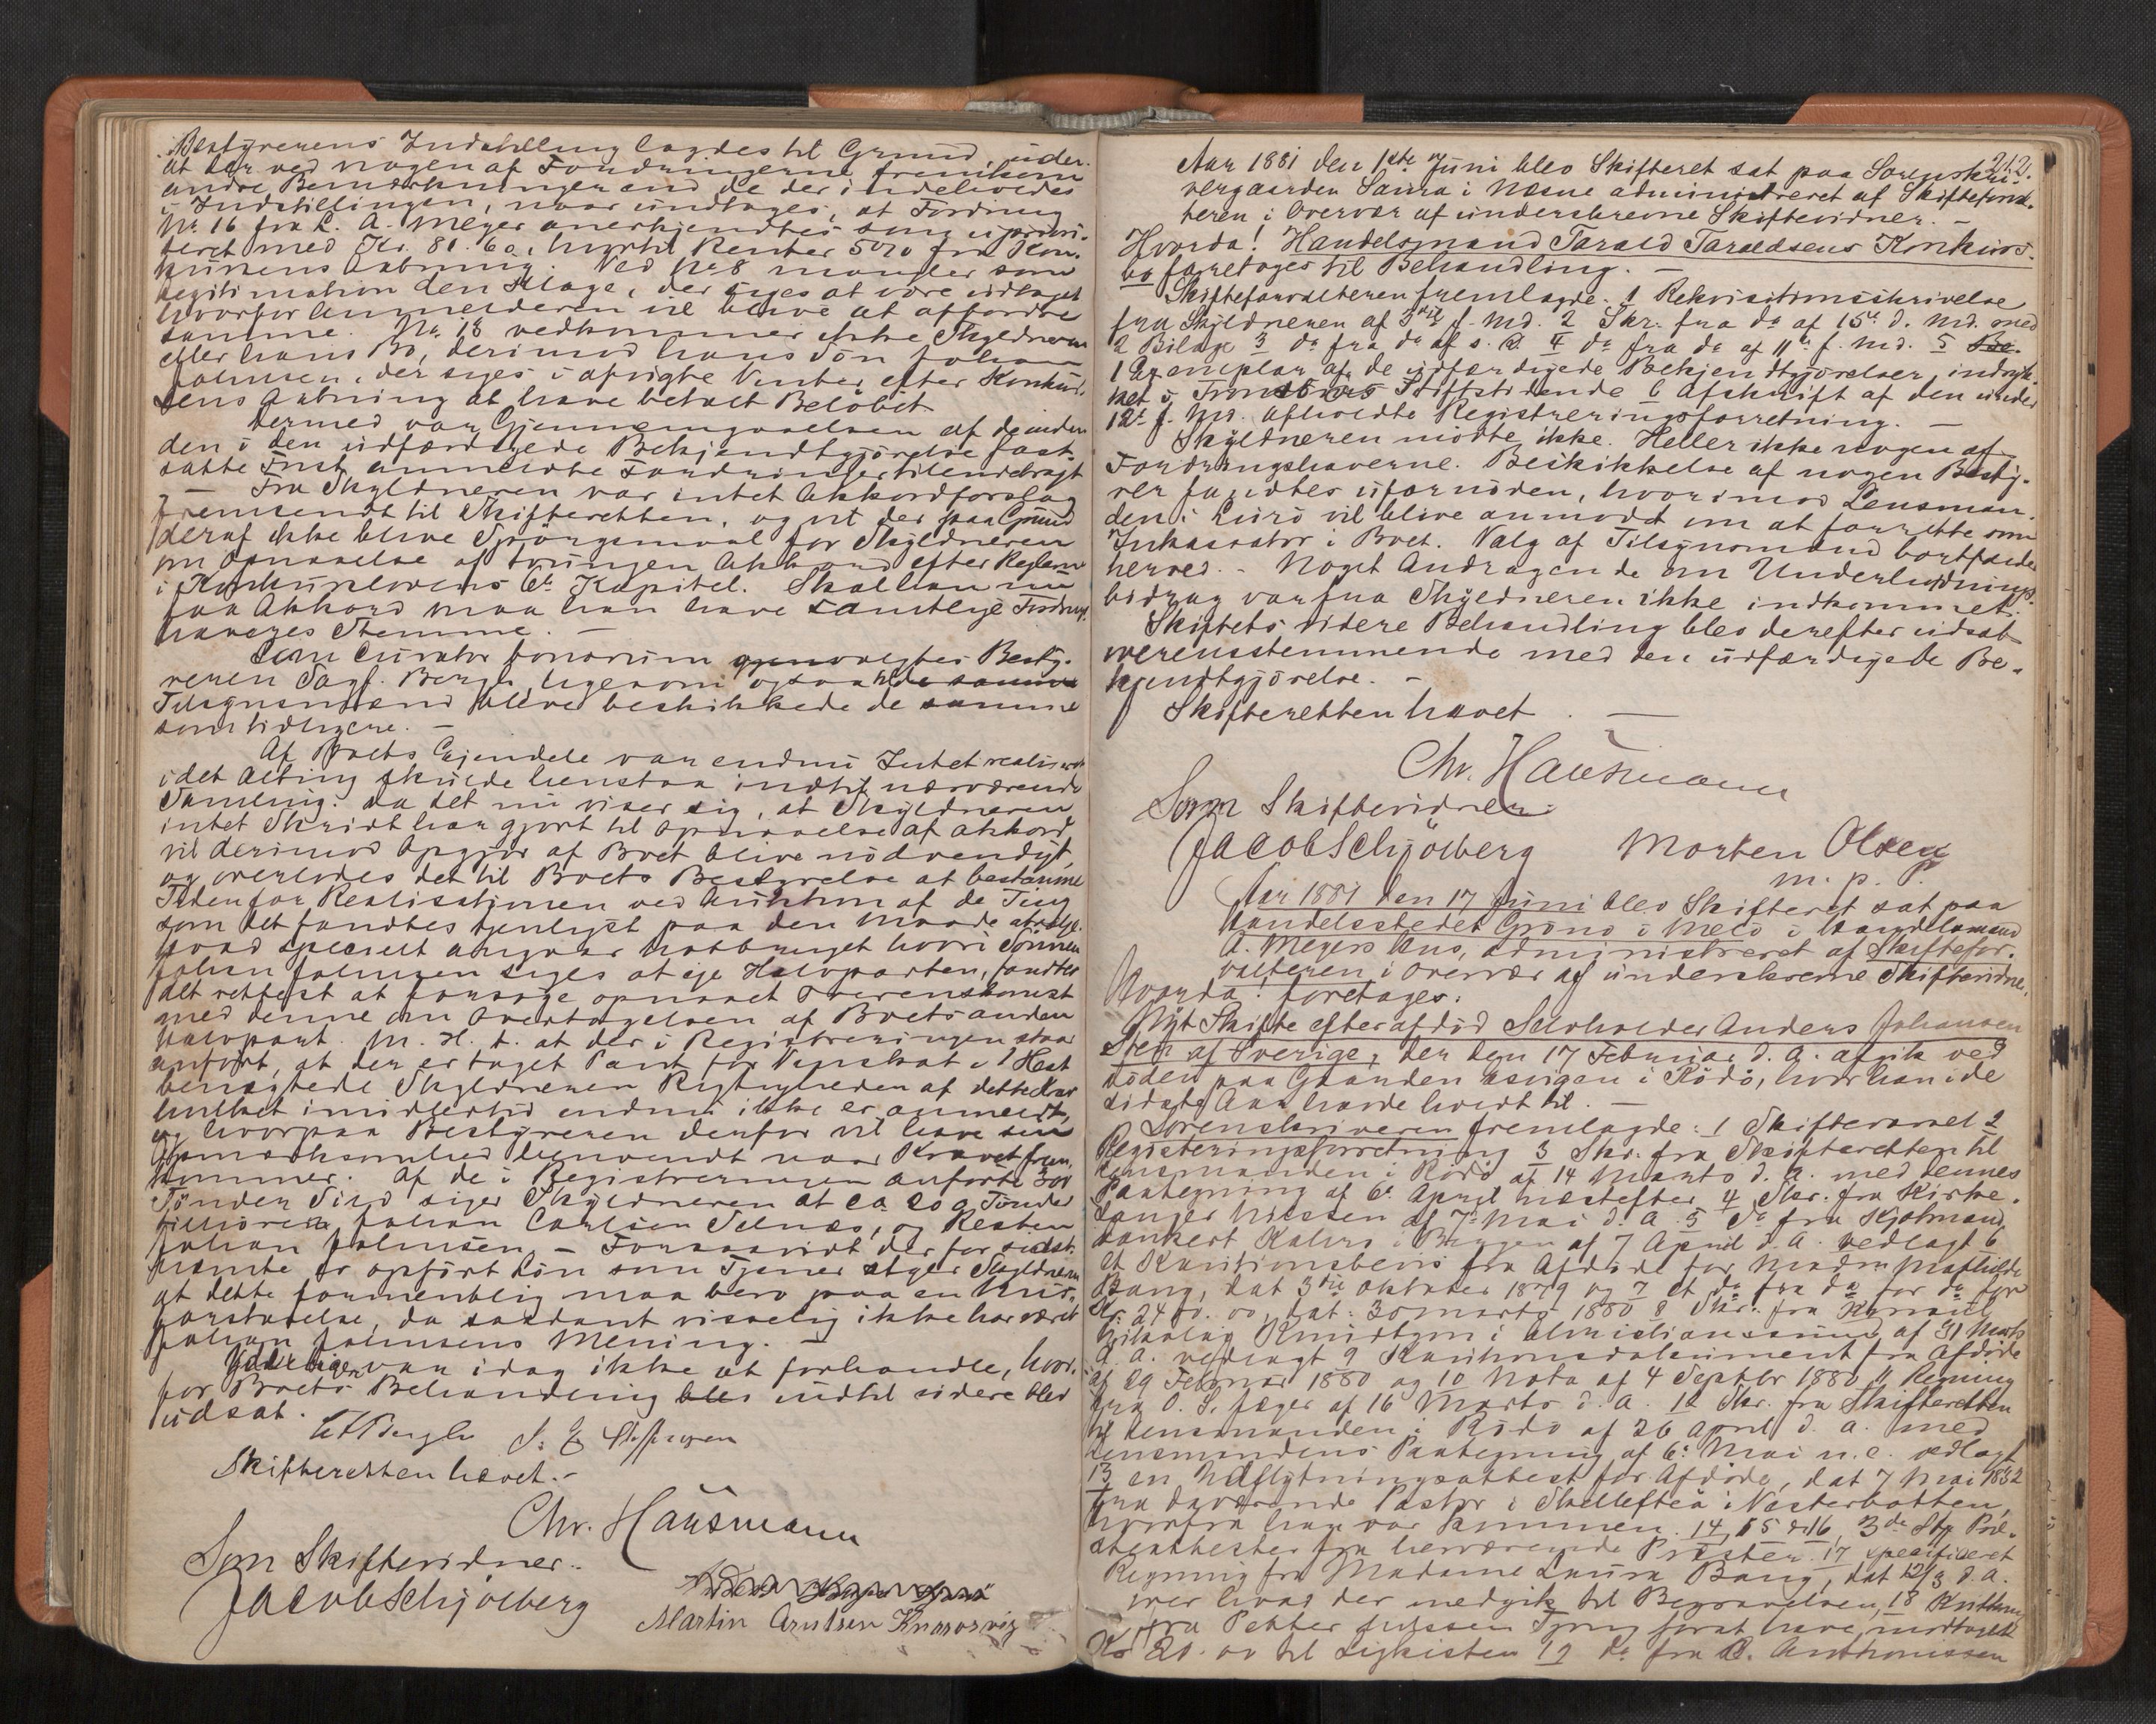 Bestyrerens Indstilling lagdes til Grund, uden
at der ved nogen af Fordringerne fremkom
andre Bemærkninger end de der indeholdes
i Indstillingen, naar undtages, at Fordring
No 16 fra L. A. Meyer anerkjendtes som uprivi-
leret med Kr. 81.60, hvortil Renter 5% fra Kon-
kursens Aabning. Ved No 8 mangler som
Legitimation den Klage, der siges at være udtaget
hvorfor Anmelderen vil blive at affordre
samme. No. 18 vedkommer ikke Skyldneren
eller hans Bo, derimod hans Søn Johan
Johnsen, der siges i afvigte Vinter efter Konkur-
sens Aabning at have betalt Beløbet
Dermed var Gjennemgaaelsen af de inden
den i den udfærdigede Bekjendtgjørelse fast-
satte Frist anmeldte Fordringer tilendebragt
Fra Skyldneren var intet Akkordforslag
fremsendt til Skifteretten, og vil der paa Grund
deraf ikke blive Spørgsmaal for Skyldneren
om Opnaaelse af tvungen Akkord efter Reglerne
i Konkurslovens 6te Kapitel. Skal han nu
faa Akkord maa han have samtlige Fordrings-
haveres Stemme. —
Som Curator bonorum gjenvalgtes Besty-
reren Sagf. Bergh, ligesom ogsaa til de samme
Tilsynsmænd blive beskikkede de samme
som tidligere. —
Af Boets Eiendele var endnu Intet realiseret
idet Alting skulde henstaa indtil nærværende
Samling. Da det nu viser sig, at Skyldneren
intet Skridt har gjort til Opnaaelse af Akkord,
vil derimod Opgjør af Boet blive nødvendigt,
og overlodes det til Boets Bestyrelse at bestemme
Tiden for Realisationen ved Auktion af de Ting
som det fandtes tjenligst paa den Maade at sælge.
Hvad specielt angaar Notbruget hvori Sønnen
Johan Johnsen siges at eje Halvparten, fandtes
det rettest at forsøge opnaaet Overenskomst
med denne om Overtagelsen af Boets anden
Halvpart. M. H. t. at der i Registreringen staar
anført, at der er taget Pant for Veiskat i 1 Hest
benægtede Skyldneren Rigtigheden af dette Krav
hvilket imidlertid endnu ikke er anmeldt,
og hvorpaa Bestyreren derfor vil have sin
Opmærksomhed henvendt naar Kravet frem-
kommer. Af de i Registreringen anførte 300
Tønder Sild siger Skyldneren at ca. 200 Tønder
tilhører Johan Carlsen Selnæs, og Resten
Johan Johnsen. — Forsaavidt der for sidst-
nævnte er opført Løn som Tjener siger Skyldneren
at dette formentlig maa bero paa en Mis-
forstaaelse, da saadant visselig ikke har været
Johan Johnsens Mening. —
Yderligere var idag ikke at forhandle, hvor-
for Boets Behandling blev indtil videre blev
udsat.
Skifteretten hævet. -
Chr. Hausmann
Som Skiftevidner:
Jacob Schjölberg
Martin Arntsen Knarsvig
212.
Aar 1881 den 1ste Juni blev Skifteret sat paa Sorenskri-
vergaarden Saura i Nesne administreret af Skifteforval-
teren i Overvær af underskrevne Skiftevidner. —
Hvorda! Handelsmand Tarald Taraldsens Konkurs-
bo foretages til Behandling. —
Skifteforvalteren fremlagde. 1 Rekvisitionsskrivelse
fra Skyldneren af 3die f. Md. 2 Skr. fra do af 15de d. Md. med
2 Bilage 3 do fra do af s. D. 4 do fra do af 11te f. Md. 5
1 Exemplar af de udfærdigede Bekjendtgjørelser, indryk-
ket i Tromsø Stiftstidende 6 Afskrift af den under
12te f. Md. afholdte Registreringsforretning. —
Skyldneren mødte ikke. Heller ikke nogen af
Fordringshaverne. Beskikkelse af nogen Besty-
rer fandtes ufornøden, hvorimod Lensman-
den i Lurø vil blive anmodet om at forrette som
Inkassator i Boet. Valg af Tilsynsmænd bortfalder
herved. - Noget Andragende om Underholdnings-
bidrag var fra Skyldneren ikke indkommet.
Skiftets videre Behandling blev derefter udsat
overensstemmende med den udfærdigede Be-
kjendtgjørelse. -
Skifteretten hævet. —
Chr. Hausmann
Som Skiftevidner:
Jacob Schjölberg Morten Olsen
m. p. P.
Aar 1881 den 17 Juni blev Skifteret sat paa
Handelsstedet Grønø i Melø i Handelsmand
A. Meyers Hus, administreret af Skiftefor-
valteren i Overvær af underskrevne Skiftevidner.
Hvorda! foretages:
Nyt Skifte efter afdød Selvholder Anders Johansen
af Sverige, der den 17 Februar d. A. afgik ved
Døden paa Gaarden Esvigen i Rødø, hvor han i de
sidste Aar havde holdt til. —
Sorenskriveren fremlagde: 1 Skifteramel 2
Registreringsforretning 3 Skr. fra Skifteretten til
Lensmanden i Rødø af 14 Marts d. A. med dennes
Paategning af 6te April næstefter 4 Skr. fra Kirke-
sanger Nilssen af 7de Mai d. A. 5 do fra Kjøbmand
Dankert Kahrs i Bergen af 7 April d. A. vedlagt 6
et Kautionsbevis fra Afdøde for Madm Mathilde
Bang, dat 3die Oktober 1879 og 7 et do fra do for do for
Kr. 2400.00, dat: 30 Marts 1880 8 Skr. fra Konsul
Nikolay Knudtzon i Christianssund af 31 Marts
d. A. vedlagt 9 Kautionsdokument fra Afdøde
af 29 Februar 1880 og 10 Nota af 4 Septbr 1880 11 Regning
fra O. S. Jæger af 16 Marts d. A. 12 Skr. fra Skifteretten
til Lensmanden i Rødø af 26 April d. A. med
Lensmandens Paategning af 6te Mai n. e. vedlagt
13 en Udflytningsattest for Afdøde, dat 7 Mai 1832
fra daværende Pastor i Skellefteå i Vesterbotten,
hvorfra han var kommen. 14, 15 & 16, 3de Stk. Præ-
steattester fra herværende Præster. 17 specificeret
Regning fra Madame Laura Bang, dat 12/3 d. A.
over hvad der medgik til Begravelsen, 18 Kvittering
fra Petter Jussen Tjong forat have modtaget
Kr 20.00 til Ligkisten 19 do fra B. Anthonissen